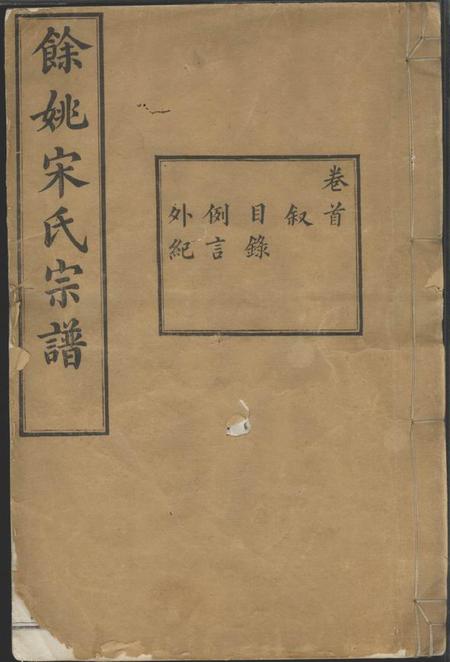 餘姚宋氏宗譜
卷首
叙
目錄
例言
外紀